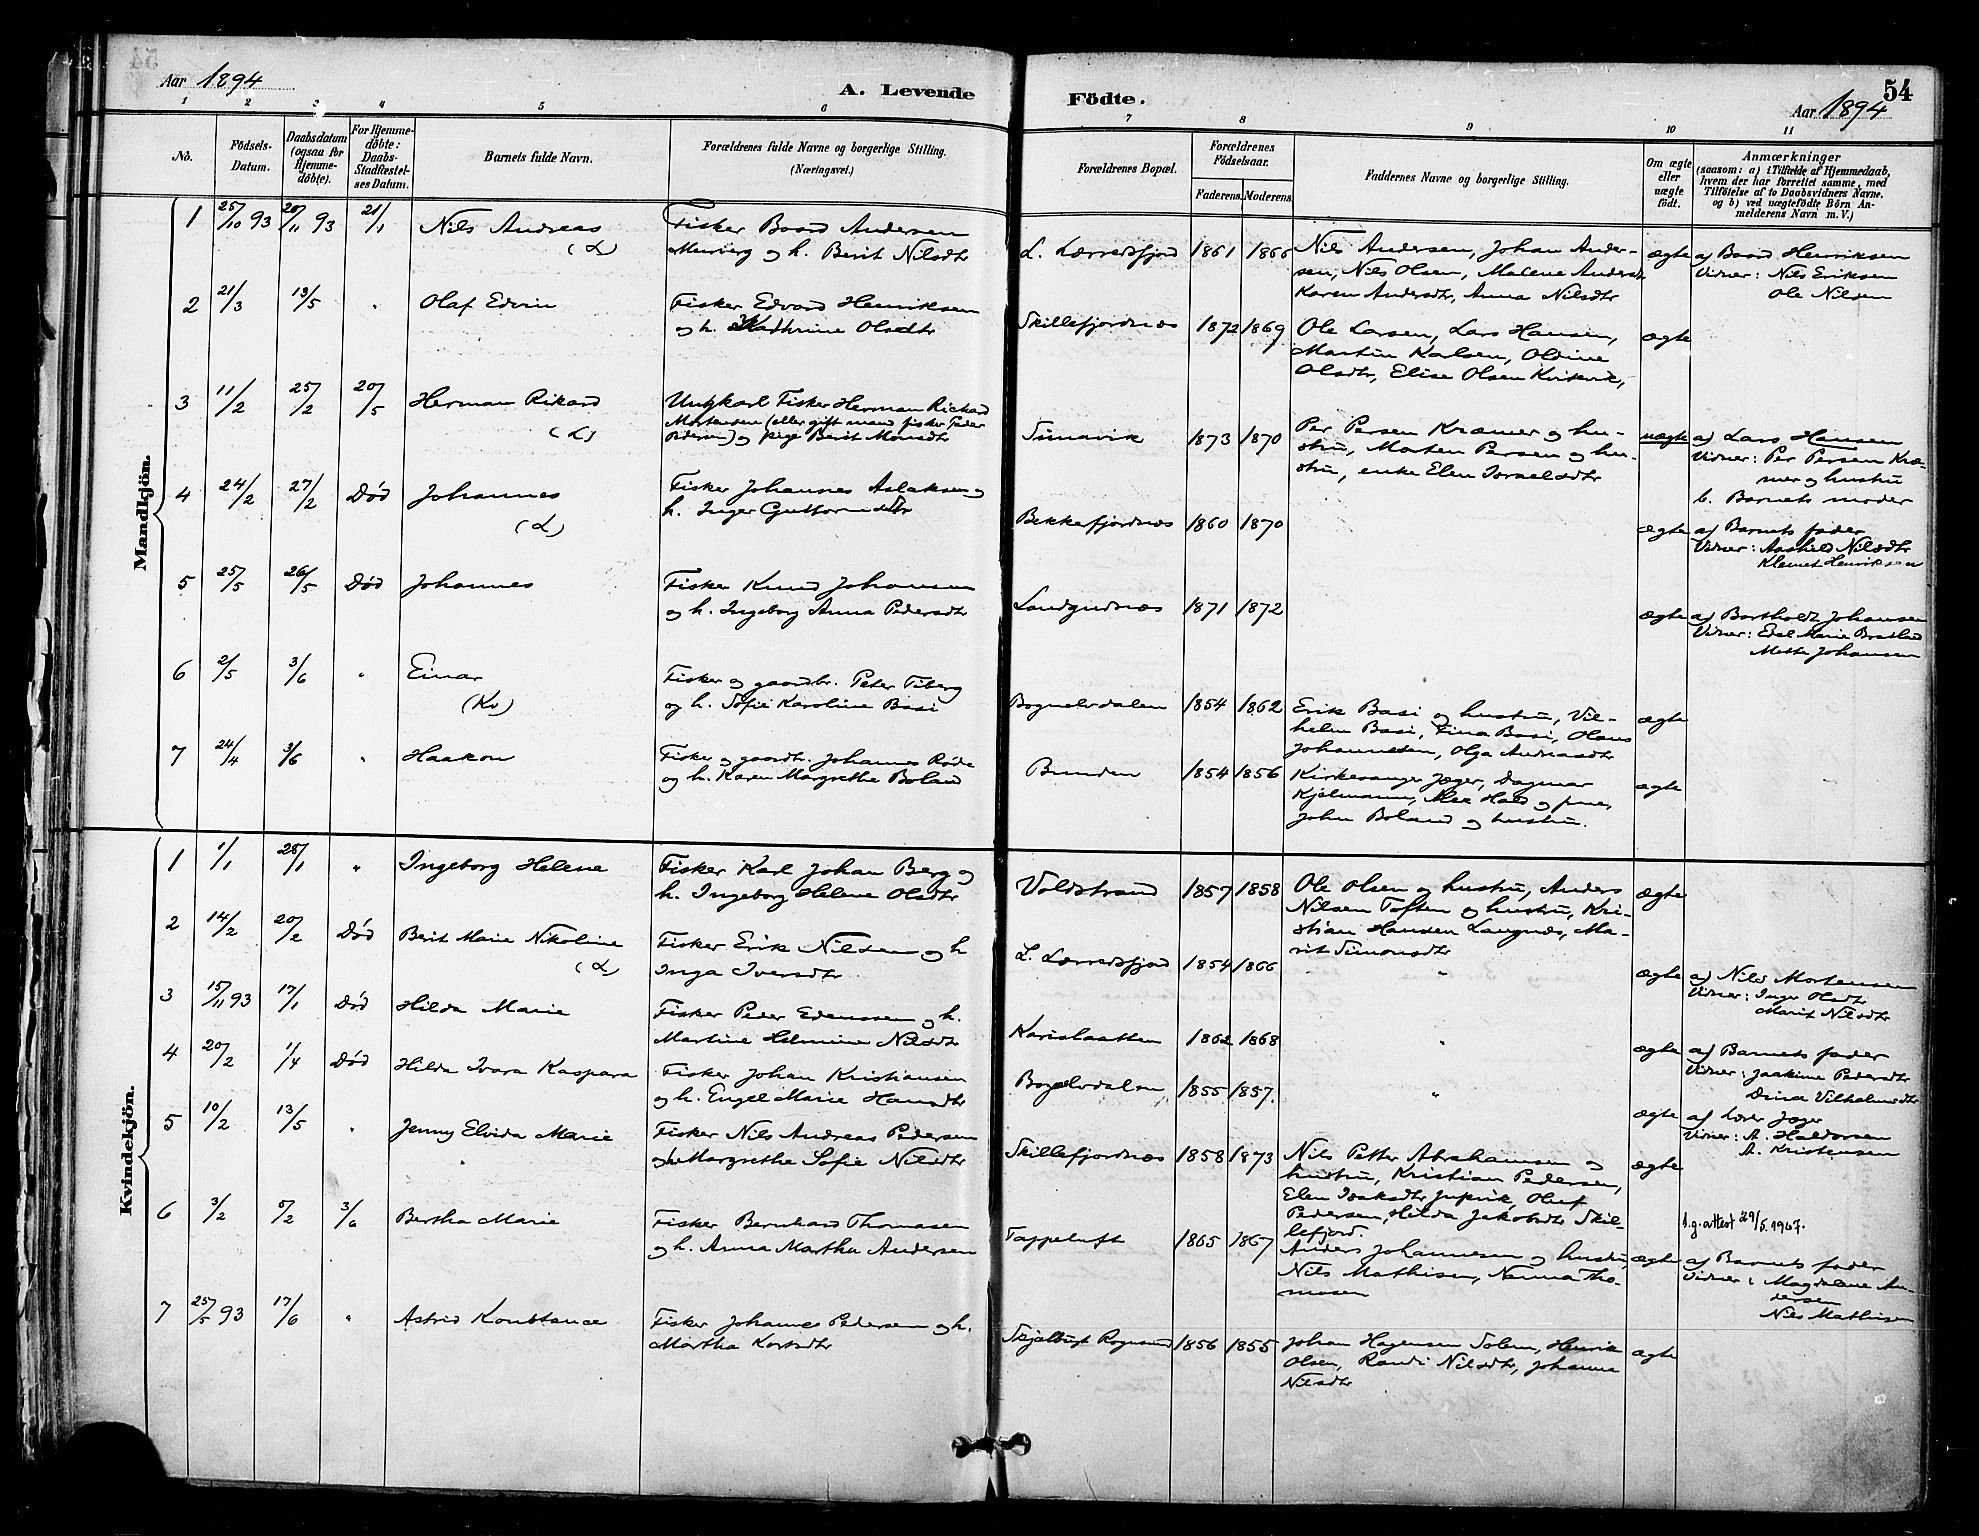 54
Aar 1894
A. Levende Födte.
Aar 1894
1 2 3 4 5 6 7 8 9 10 11
No.
Födsels-Datum.
Daabsdatum (ogsaa for Hjemme-döbte).
For Hjemme-döbte: Daabs-Stadfæstel-ses Datum.
Barnets fulde Navn.
Forældrenes fulde Navne og borgerlige Stilling.
(Næringsvei.)
Forældrenes Bopæl.
Forældrenes Födselsaar.
Faderens. Moderens.
Faddernes Navne og borgerlige Stilling.
Om ægte eller uægte födt.
Anmærkninger
(saasom: a) i Tilfælde af Hjemmedaab,
hvem der har forrettet samme, med
Tilföielse af to Daabsvidners Navne,
og b) ved uægtefödte Börn An-
melderens Navn m. V.)
Mandkjön.
1 25/10 93 20/11 93 21/1 Nils Andreas (L)
Fisker Baard Andersen
Murberg og h. Berit Nilsdtr
L. Lerredsfjord 1861 1866
Nils Andersen, Johan Ander-
sen, Nils Olsen, Malene Andersd.
Karen Andersdtr, Anna Nilsdtr
ægte a) Baard Henriksen
Vidner: Nils Eriksen
Ole Nilsen
2 21/3 13/5 " Olaf Edvin
Fisker Edvard Henriksen
og h. Kathrine Olsdtr
Skillefjordnæs 1872 1869
Ole Larsen, Lars Hansen,
Martin Karlsen, Oldine
Olsdtr, Elise Olsen Kvikvik,
ægte
3 11/2 25/2 20/5 Herman Rikard (L)
Ungkarl Fisker Herman Rickard
Mortensen (eller gift mand fisker Peder
Pedersen) og pige Berit Monsdtr
Simavik 1873 1870
Per Persen Kræmer og hu-
stru, Morten Persen og hu-
stru, enke Elen Israelsdtr
uægte a) Lars Hansen
Vidner: Per Persen Kræ-
mer og hustru
b. Barnets moder
4 24/2 27/2 Död Johannes (L)
Fisker Johannes Aslaksen og
h. Inger Guttormsdtr
Bekkefjordnæs 1860 1870
ægte a) Barnets fader
Vidner: Aashild Nilsdtr
Klemet Henriksen
5 25/5 26/5 Död Johannes
Fisker Knud Johansen
og h. Ingeborg Anna Pedersdtr
Landgudnæs 1871 1872
ægte a) Bartholdt Johansen
Vidner: Edel Marie
Mette Johansen
6 2/5 3/6 " Einar (Kv)
Fisker og gaardbr. Peter Tiberg
og h. Sofie Karoline Basi
Bognelvdalen 1854 1862
Erik Basi og hustru, Vil-
helm Basi, Fina Basi, Olaus
Johannessen, Olga Andreasdtr
ægte
7 24/4 3/6 " Haakon
Fisker og gaardbr. Johannes Röde
og h. Karen Margrethe Boland
Bunden 1854 1856
Kirkesanger Jæger, Dagmar
Kjelmann, Alex Hald og frue,
John Boland og hustru.
ægte
Kvindekjön.
1 1/1 28/1 " Ingeborg Helene
Fisker Karl Johan Berg og
h. Ingeborg Helene Olsdtr
Voldstrand 1857 1858
Ole Olsen og hustru, Anders
Nilsen Toften og hustru, Kri-
stian Hansen Langnæs, Ma-
rit Simonsdtr
ægte
2 14/2 20/2 Död Berit Marie Nikoline (L)
Fisker Erik Nilsen og h
Inga Iversdtr
L. Lerredsfjord 1854 1866
"
ægte a) Nils Mortensen
Vidner: Inger Olsdtr
Marit Nilsdtr
3 15/11 93 17/1 Död Hilda Marie
Fisker Peder Edenssen og h.
Martine Helmine Nilsdtr
Karislaatten 1862 1868
"
ægte a) Barnets fader
Vidner: Joakime Pedersdtr
Dina Vilhelmsdtr
4 20/2 1/4 Död Hilda Ivara Kaspara
Fisker Johan Kristiansen
og h. Engel Marie Hansdtr
Bognelvdalen 1855 1857
"
ægte a) lærer Jæger
Vidner: A. Haldorsen
A. Kristensen
5 10/2 13/5 " Jenny Elvida Marie
Fisker Nils Andreas Pedersen
og h. Margrethe Sofie Nilsdtr
Skillefjordnæs 1858 1873
Nils Petter Abrahamsen og
hustru, Kristian Pedersen,
Elen Isaksdtr Jupvik, Oluf
Pedersen, Hilda Jakobsdtr Skil-
lefjord.
ægte
6 3/2 5/2 3/6 Bertha Marie
Fisker Bernhard Thomasen
og h. Anna Martha Andersen
Tappeluft 1865 1867
Anders Johannesen og hustru,
Nils Mathisen, Nanna Tho-
masen
ægte
d.g. attest 29/5 1907.
a) Barnets fader
Vidner: Magdalene An-
dersen
Nils Mathisen
7 25/5 93 17/6 " Astrid Konstance
Fisker Johannes Pedersen og h.
Martha Kortsdtr
Skjelbugt Rognsund 1856 1855
Johan Hagensen Solem, Henrik
Olsen, Randi Nilsdtr, Johanna
Nilsdtr
ægte